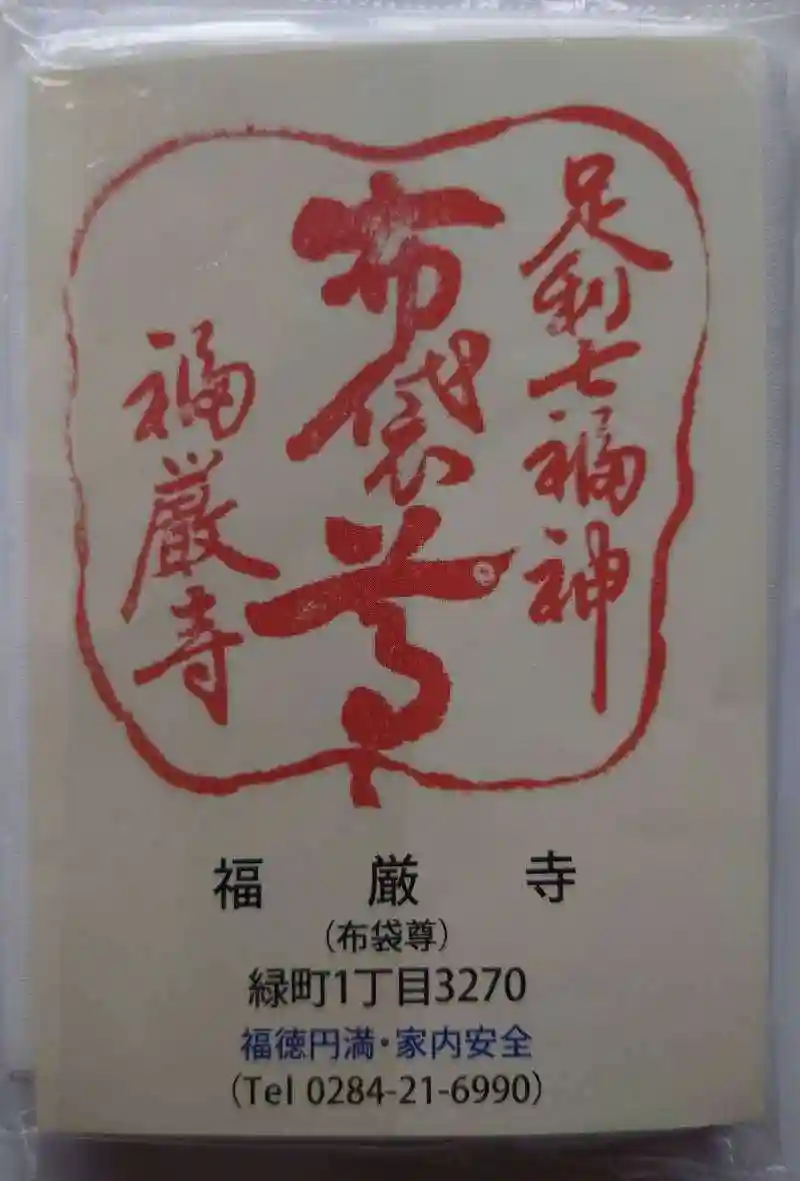 足利七福神
布袋尊
福厳寺
福 厳 寺
(布袋尊)
緑町1丁目3270
福徳円満・家内安全
(Tel 0284-21-6990)